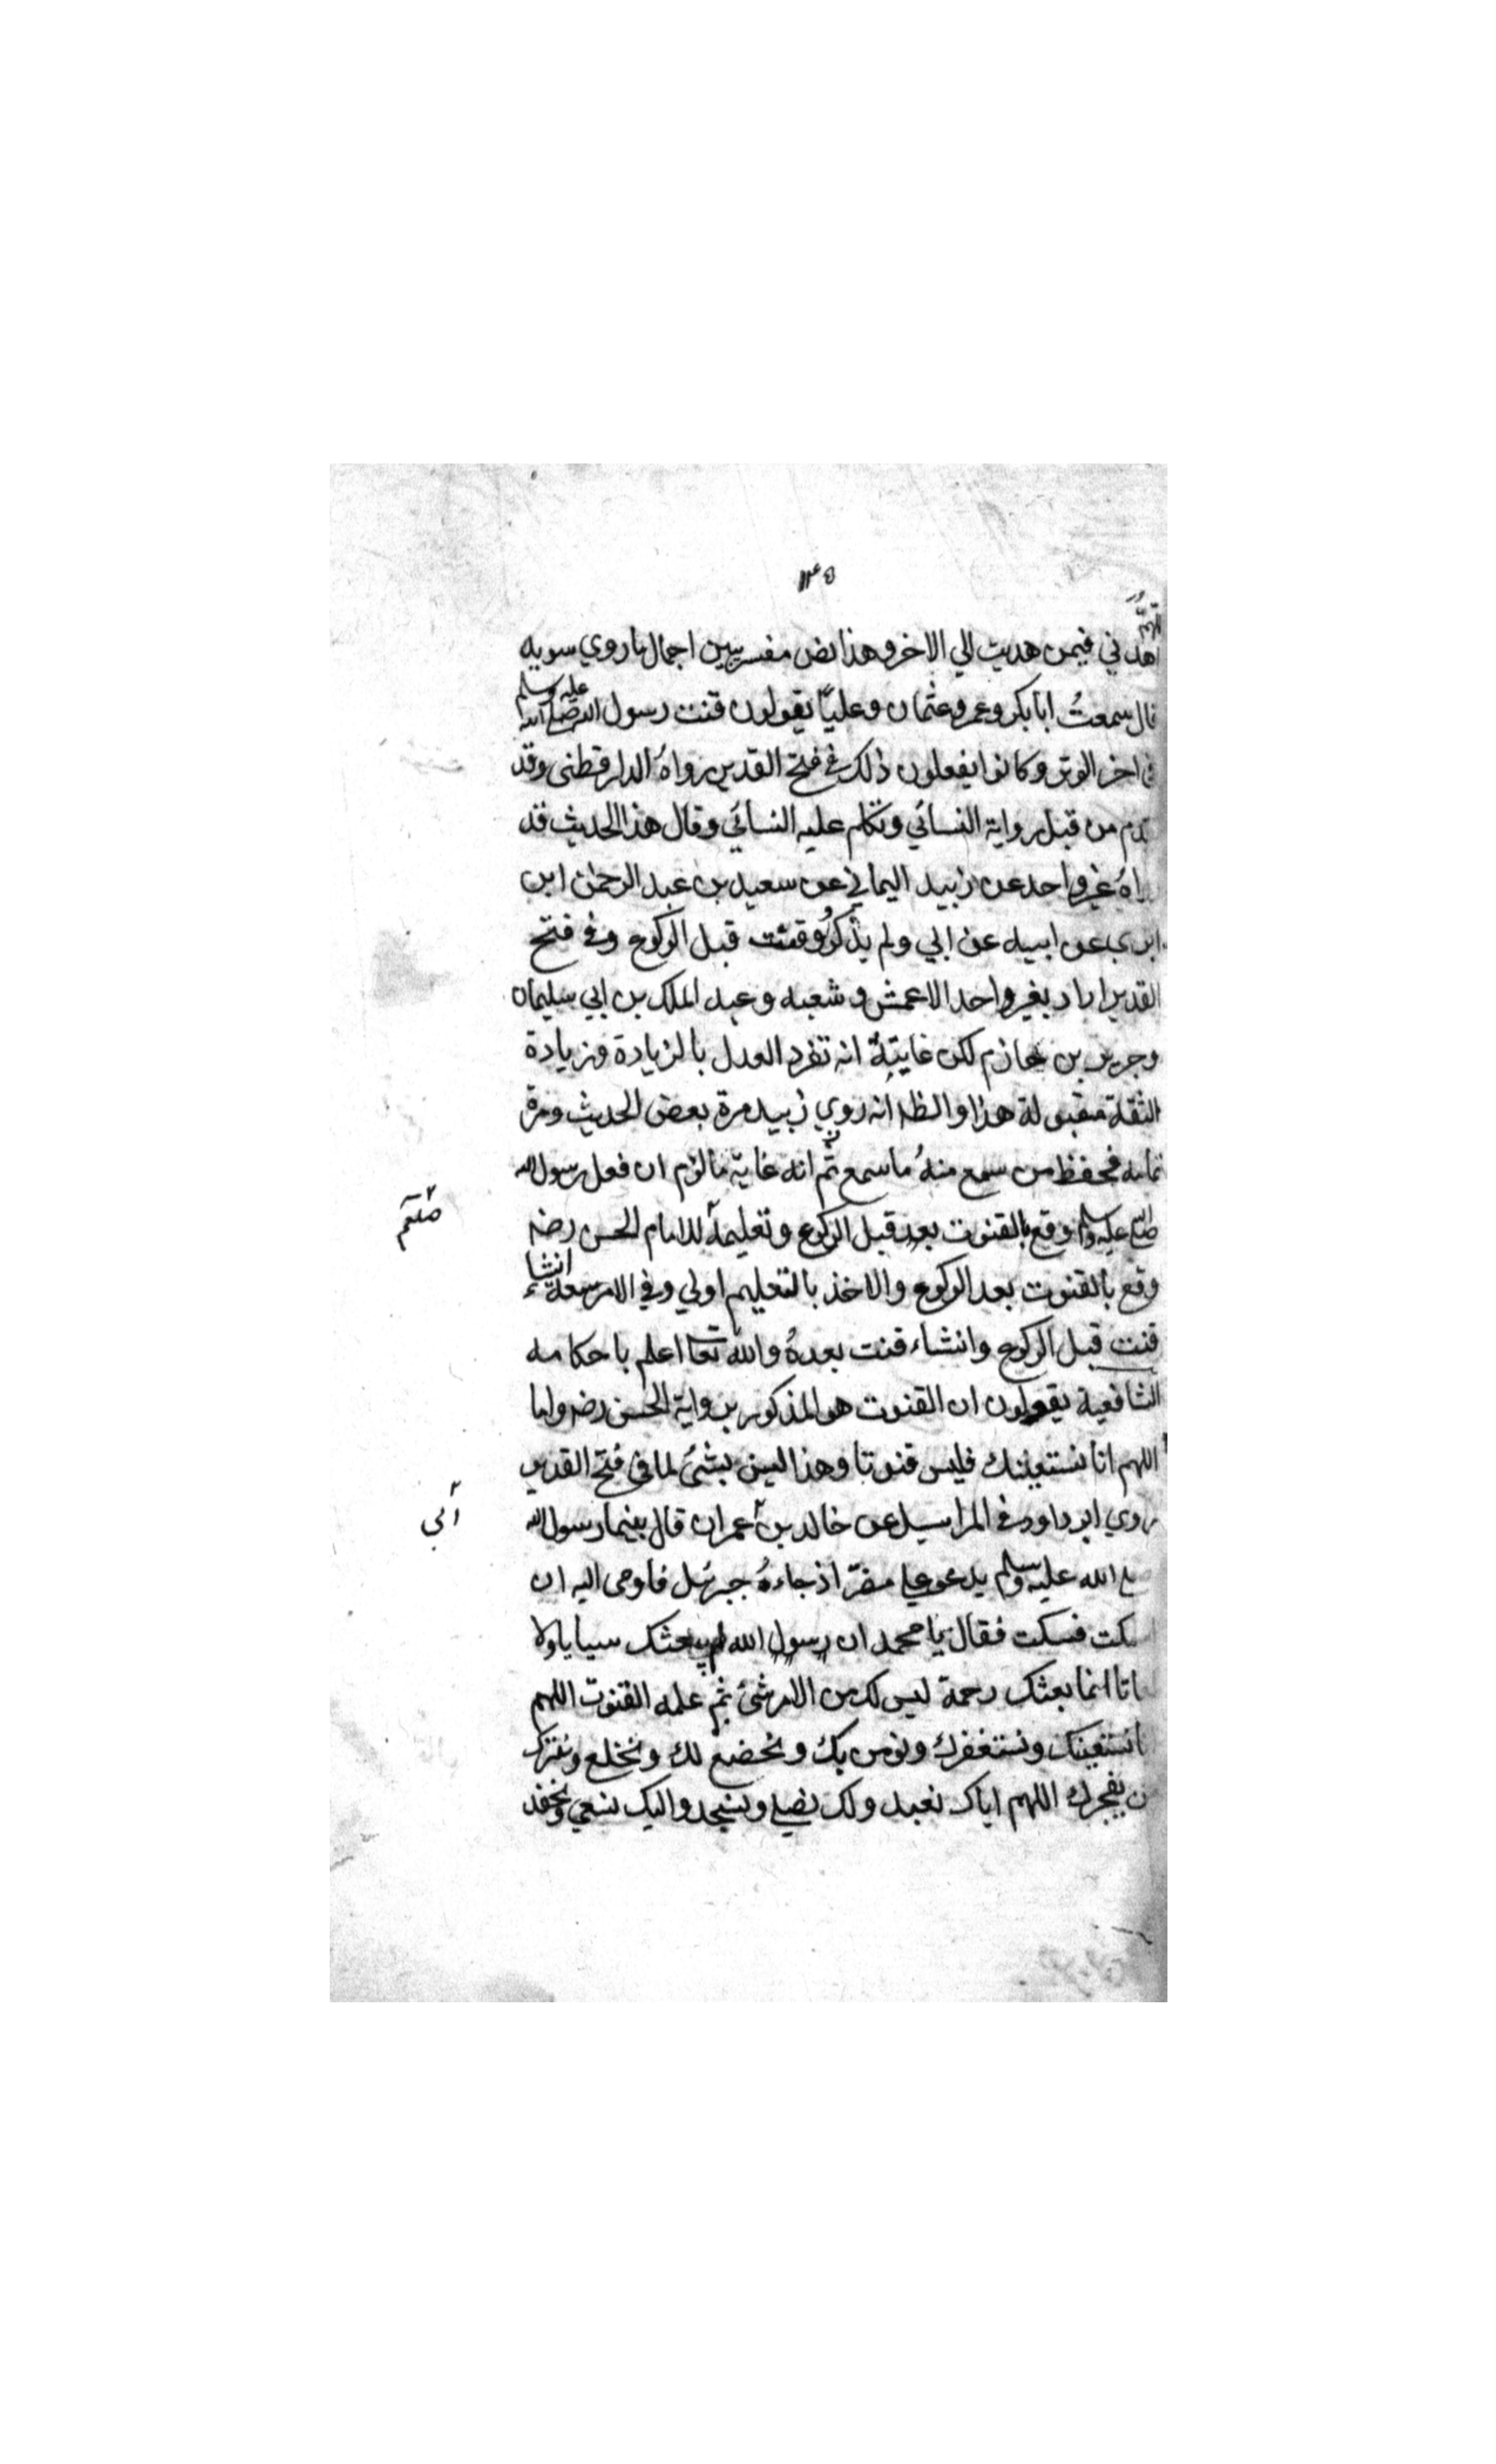 ١٣٥
اللهم
اهدني فيمن هديت الي الاخر وهذا نص مفسر يبين اجمال ما روي سويد
قال سمعتُ ابا بكر وعمر وعثمان وعليًا يقولون قنت رسول الله صلى الله عليه وسلم
في اخر الوتر وكانوا يفعلون ذلك في فتح القدير رواهُ الدارقطنى وقد
من قبل رواية النسائي وتكلم عليه النسائي وقال هذا الحديث قد
غير واحد عن زبيد اليماني عن سعيد بن عبد الرحمن ابن
ابزي عن ابيه عن ابي ولم يذكروُ وقنت قبل الركوع وفي فتح
القدير اراد بغير واحد الاعمش وشعبه وعبد الملك بن ابي سليمان
وجرير بن حازم لكن غايتهُ انه تفرد العدل بالزيادة وزيادة
الثقلة مقبولة هذا والظ انه روي زبيد مرة بعض الحديث ومرة
تمامه فحفظ من سمع منهُ ما سمع ثم انه غاية ما لزم ان فعل رسول الله
صلى الله عليه وسلم وقع بالقنوت بعد قبل الركوع وتعليمه للامام الحسن رضه
صلعم
وقع بالقنوت بعد الركوع والاخذ بالتعليم اولي وفي الامر سعة انشاء
قنت قبل الركوع وانشاء قنت بعدهُ والله تعا اعلم باحكامه
الشافعية يقولون ان القنوت هو المذكور برواية الحسن رضه واما
اللهم انا نستعينك فليس قنوتا وهذا ليس بشئ لما في فتح القدير
روي ابو داود في المراسيل عن خالد بن عمران قال بينما رسول الله
ابي
الله عليه وسلم يدعو علي مضرّ اذ جاءهُ جبرئيل فاومى اليه ان
فسكت فقال يا محمد ان رسول الله لم يبعثك سبابا ولا
انما بعثك رحمة ليس لك من الامر شئ ثم علمه القنوت اللهم
نستعينك ونستغفرك ونومن بك ونخضع لك ونخلع ونترك
يفجرك اللهم اياك نعبد ولك نصلي ونسجد واليك نسعي ونحفد